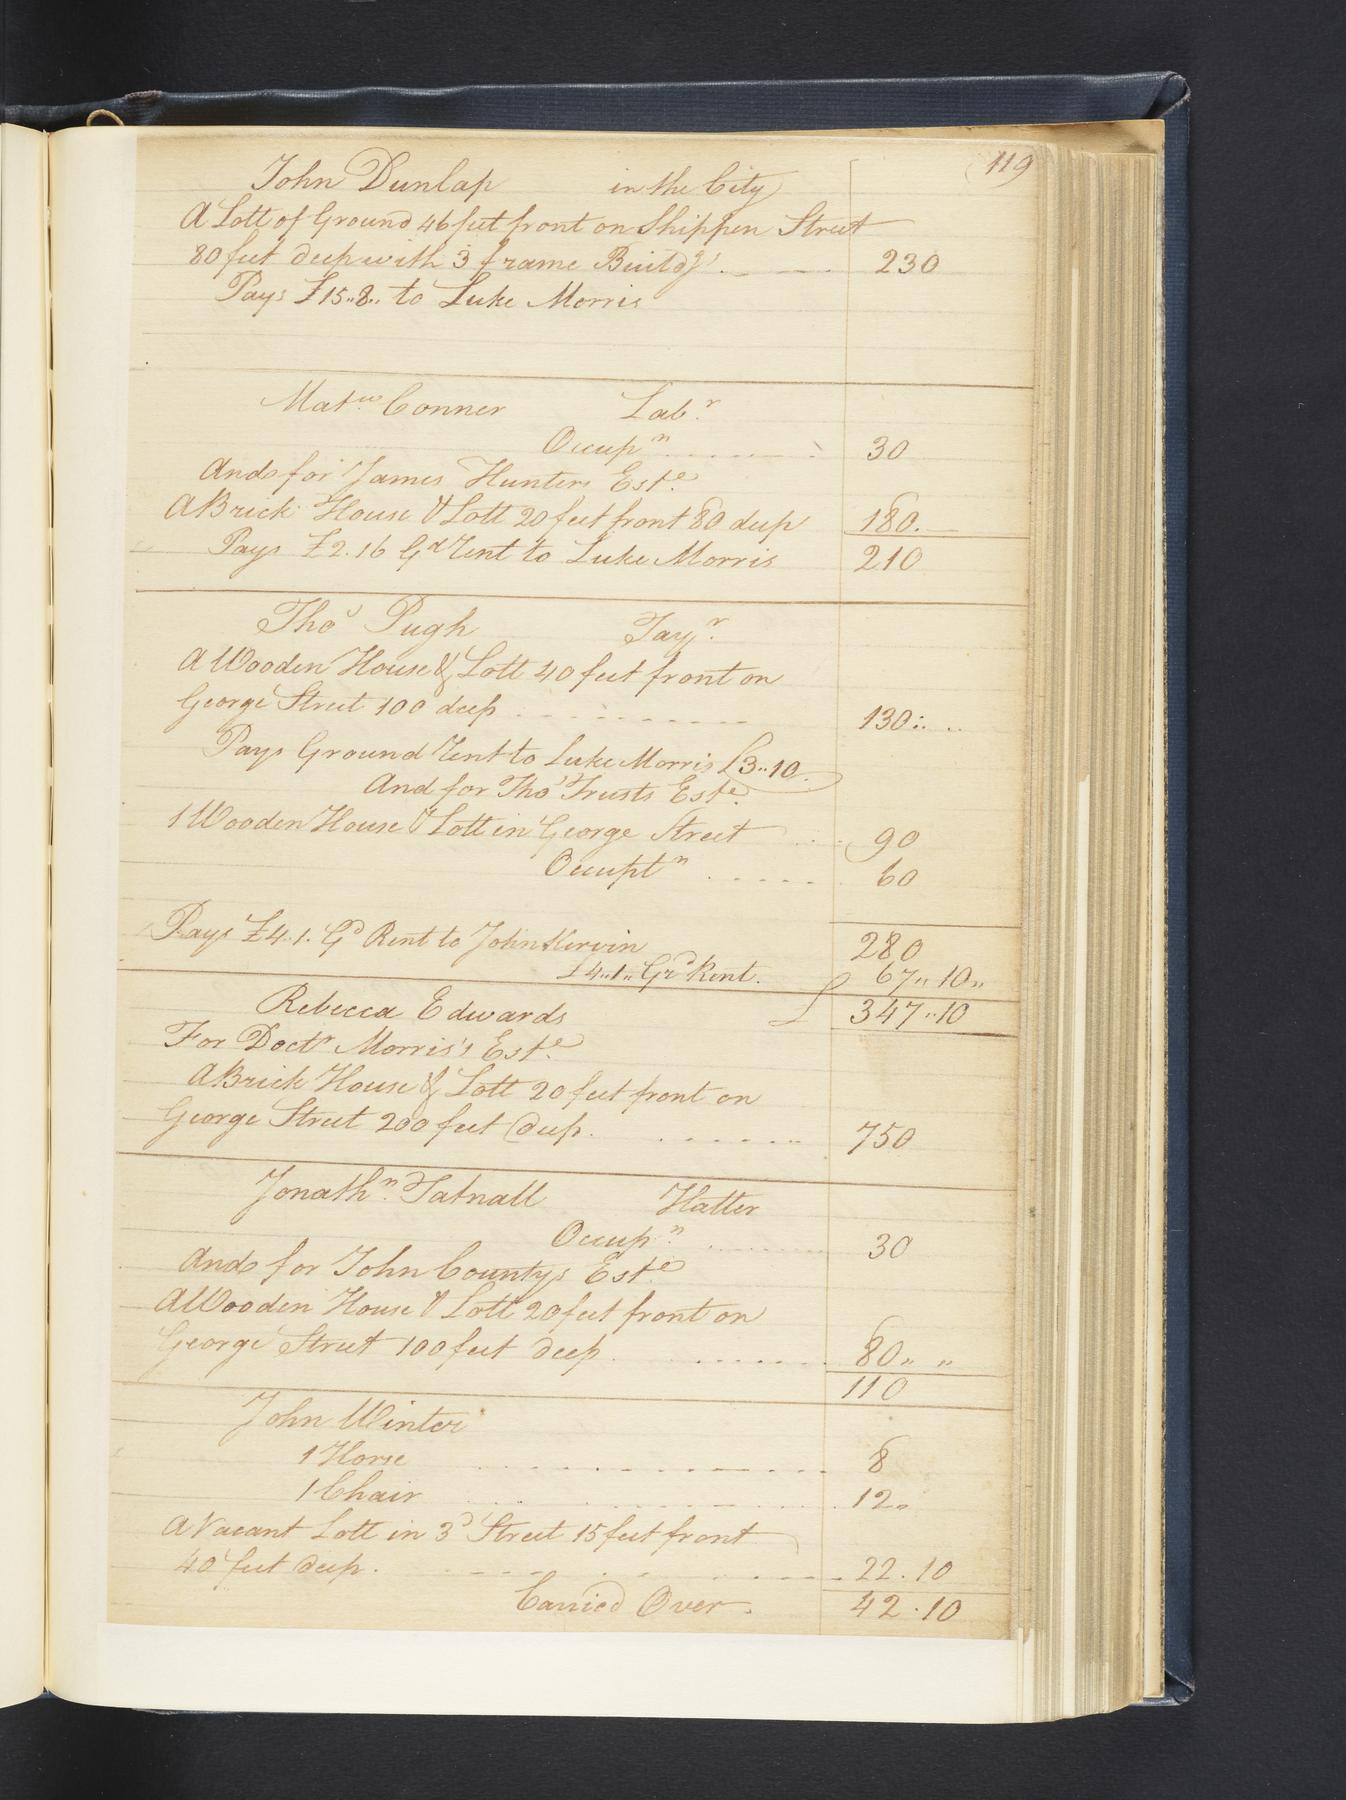 119
John Dunlap in the City
A Lott of Ground 46 feet front on Shippen Street
80 feet deep with 3 frame Buildgs. 230
Pays £15..8.. to Luke Morris
Matw Conner Labr.
Occupn 30
And for James Hunters Este.
A Brick House & Lott 20 feet front 80 deep 180.
Pays £2.16 Gd Rent to Luke Morris 210
Thos Pugh Tayr.
A Wooden House & Lott 40 feet front on
George Street 100 deep 130
Pays Ground Rent to Luke Morris £3..10.
And for Thos Trusts Este.
1 Wooden House & Lott in George Street 90
Occuptn 60
Pays £4.1. Gd Rent to John Kerwin 280
£4..1.. Grd Rent. 67..10..
£ 347..10
Rebecca Edwards
For Doctr Morris's Este.
A Brick House & Lott 20 feet front on
George Street 200 feet Deep. 750
Jonathn. Tatnall Hatter
Occupn. 30
And for John Countys Este.
A Wooden House & Lott 20 feet front on
George Street 100 feet deep 80 " "
110
John Winter
1 Horse 8
1 Chair 12
A Vacant Lott in 3d Street 15 feet front
40 feet deep. 22.10
Carried Over. 42.10